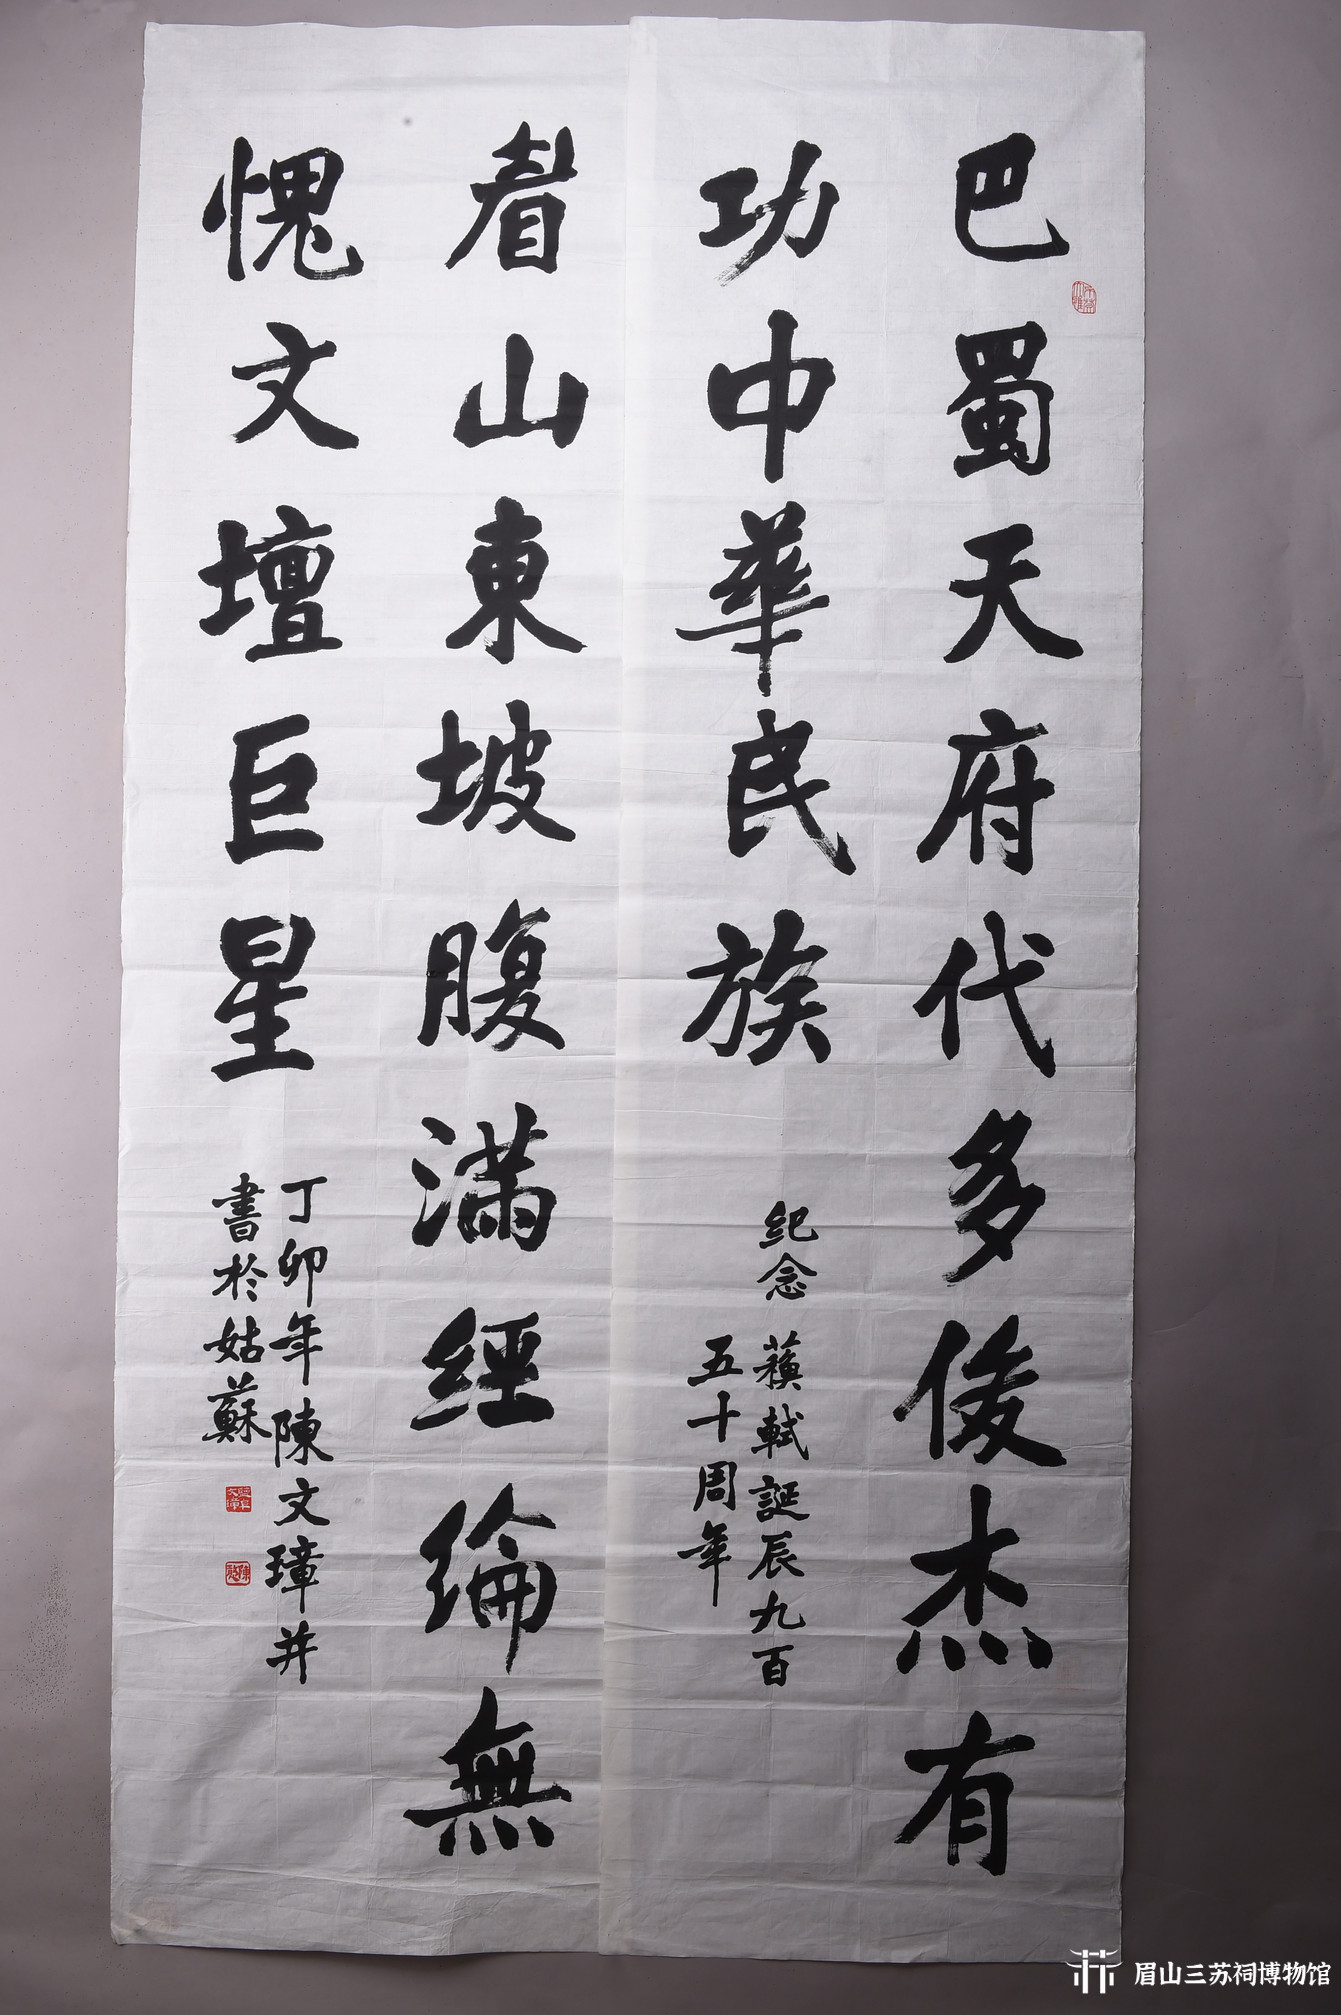 巴蜀天府代多俊杰有
功中華民族
纪念
蘇軾誕辰九百
五十周年
眉山東坡腹滿經綸無
愧文壇巨星
丁卯年陳文璋并
書於姑蘇
眉山三苏祠博物馆